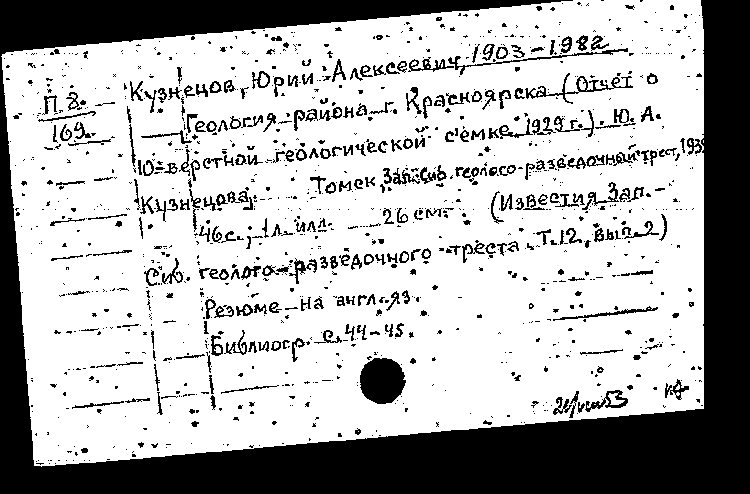 Кузнецов, Юрий Алексеевич, 1903-1982
П.8.
169.
Геология района г. Красноярска (Отчет о
10-верстной геологической с'емке 1929 г.). Ю. А.
Кузнецова. Томск, Зап. Сиб. геолого-разведочный трест,
46 с.; 1 л. илл. 26 см. (Известия Зап.-
Сиб. геолого-разведочного треста. Т.12, вып. 2)
Резюме на англ. яз.
Библиогр. с. 44-45.